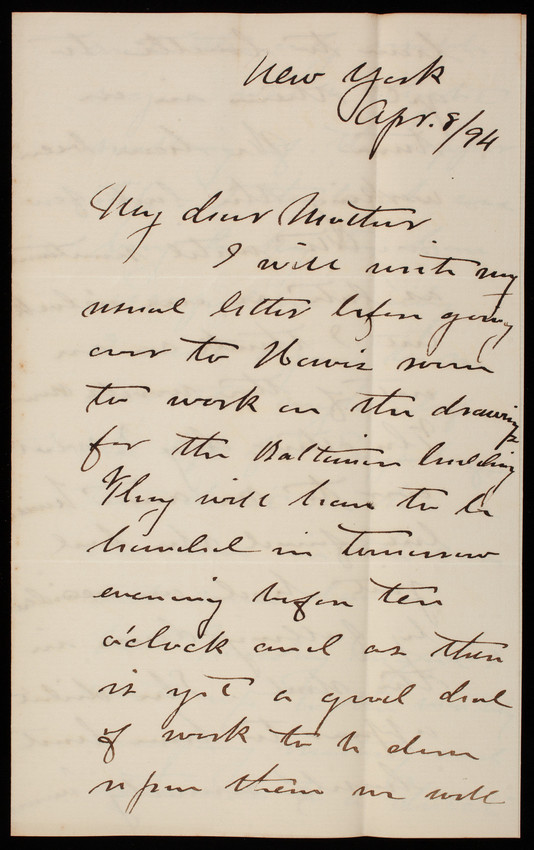 New York
Apr. 8/94
My dear Mother
I will write my
usual letter before going
over to Howis room
to work on the drawings
for the Baltimore building
They will have to be
handed in tomorrow
evening before ten
o'clock and as there
is yet a good deal
of work to be done
upon them we will